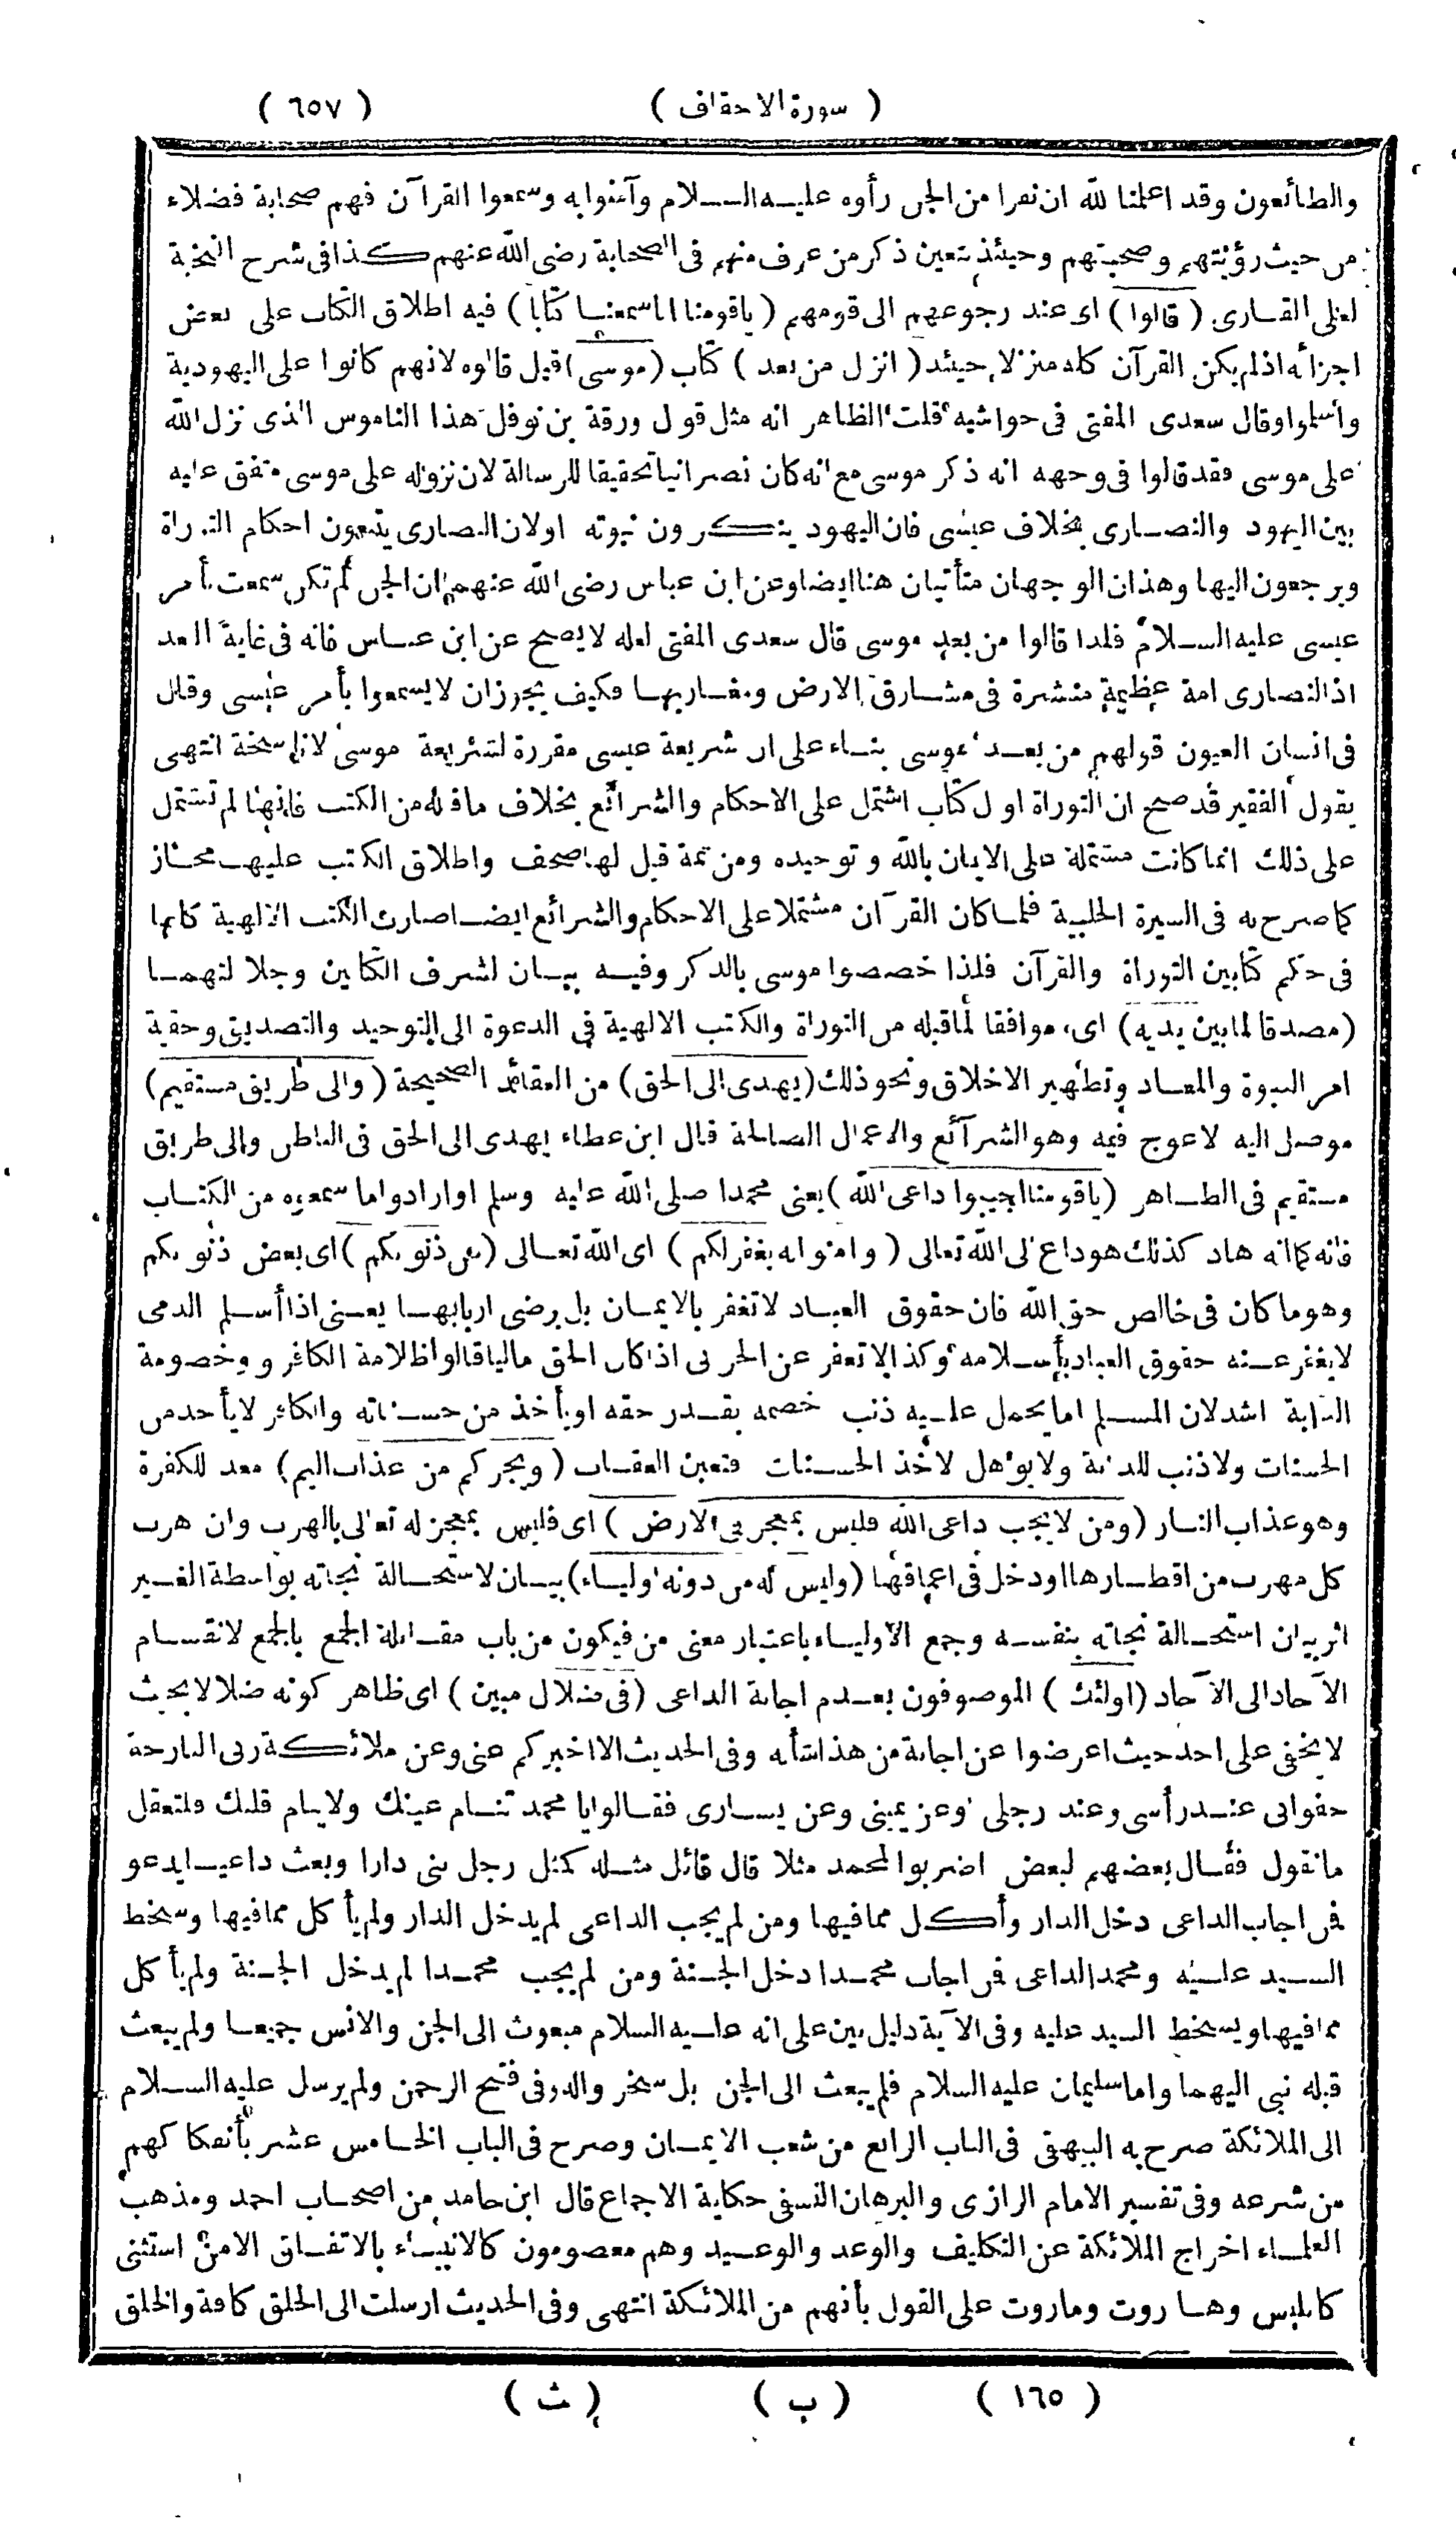 ( سورة الاحقاف ) ( ٦٥٧ )
والطائعون وقد اعلمنا الله ان نفرا من الجن رأوه عليه السلام وآمنوا به وسمعوا القرآن فهم صحابة فضلاء
من حيث رؤيتهم وصحبتهم وحينئذ يتعين ذكر من عرف منهم فى الصحابة رضى الله عنهم كذا فى شرح النخبة
لعلى القارى (قالوا) اى عند رجوعهم الى قومهم (ياقومنا انا سمعنا كتابا) فيه اطلاق الكتاب على بعض
اجزائه اذ لم يكن القرآن كله منزلا حينئذ (انزل من بعد) كتاب (موسى) قيل قالوه لانهم كانوا على اليهودية
وأسلموا وقال سعدى المفتى فى حواشيه قلت الظاهر انه مثل قول ورقة بن نوفل هذا الناموس الذى نزل الله
على موسى فقد قالوا فى وجهه انه ذكر موسى مع انه كان نصرانيا تحقيقا للرسالة لان نزوله على موسى متفق عليه
بين اليهود والنصارى بخلاف عيسى فان اليهود ينكرون نبوته اولان النصارى يتبعون احكام التوراة
ويرجعون اليها وهذان الوجهان متأتيان هنا ايضا وعن ابن عباس رضى الله عنهما ان الجن لم تكن سمعت بأمر
عيسى عليه السلام فلذا قالوا من بعد موسى قال سعدى المفتى لعله لا يصح عن ابن عباس فانه فى غاية البعد
اذ النصارى امة عظيمة منتشرة فى مشارق الارض ومغاربها فكيف يجوز ان لا يسمعوا بأمر عيسى وقال
فى انسان العيون قولهم من بعد موسى بناء على ان شريعة عيسى مقررة لشريعة موسى لا ناسخة انتهى
يقول الفقير قد صح ان التوراة اول كتاب اشتمل على الاحكام والشرائع بخلاف ما قبله من الكتب فانها لم تشتمل
على ذلك انما كانت مشتملة على الايمان بالله وتوحيده ومن ثمة قيل لها صحف واطلاق الكتب عليها مجاز
كما صرح به فى السيرة الحلبية فلما كان القرآن مشتملا على الاحكام والشرائع ايضا صارت الكتب الالهية كلها
فى حكم كتابين التوراة والقرآن فلذا خصصوا موسى بالذكر وفيه بيان لشرف الكتابين وجلالتهما
(مصدقا لما بين يديه) اى موافقا لما قبله من التوراة والكتب الالهية فى الدعوة الى التوحيد والتصديق وحقية
امر النبوة والمعاد وتطهير الاخلاق ونحو ذلك (يهدى الى الحق) من العقائد الصحيحة (والى طريق مستقيم)
موصل اليه لا عوج فيه وهو الشرآئع والاعمال الصالحة قال ابن عطاء يهدى الى الحق فى الباطن والى طريق
مستقيم فى الظاهر (ياقومنا اجيبوا داعى الله) يعنى محمدا صلى الله عليه وسلم او ارادوا ما سمعوه من الكتاب
فانه كما انه هاد كذلك هو داع الى الله تعالى (وآمنوا به يغفر لكم) اى الله تعالى (من ذنوبكم) اى بعض ذنوبكم
وهو ما كان فى خالص حق الله فان حقوق العباد لا تغفر بالايمان بل برضى اربابها يعنى اذا أسلم الذمى
لا يغفر عنه حقوق العباد بإسلامه وكذا لا تغفر عن الحربى اذا كان الحق ماليا قالوا ظلامة الكافر وخصومة
الدابة اشد لان المسلم اما يحمل عليه ذنب خصمه بقدر حقه او يأخذ من حسناته والكافر لا يأخذ من
الحسنات ولا ذنب للدابة ولا يؤهل لأخذ الحسنات فتعين العقاب (ويجركم من عذاب اليم) معد للكفرة
وهو عذاب النار (ومن لا يجب داعى الله فليس بمعجز فى الارض) اى فليس بمعجز له تعالى بالهرب وان هرب
كل مهرب من اقطارها او دخل فى اعماقها (وليس له من دونه اولياء) بيان لاستحالة نجاته بواسطة الغير
اثر بيان استحالة نجاته بنفسه وجمع الاولياء باعتبار معنى من فيكون من باب مقابلة الجمع بالجمع لانقسام
الآحاد الى الآحاد (اولئك) الموصوفون بعدم اجابة الداعى (فى ضلال مبين) اى ظاهر كونه ضلالا بحيث
لا يخفى على احد حيث اعرضوا عن اجابة من هذا شأنه وفى الحديث الا اخبركم عنى وعن ملائكة ربى البارحة
حفوا بى عند رأسى وعند رجلى وعن يمينى وعن يسارى فقالوا يا محمد تنام عينك ولا ينام قلبك فلتعقل
ما نقول فقال بعضهم لبعض اضربوا لمحمد مثلا قال قائل مثله كمثل رجل بنى دارا وبعث داعيا يدعو
فمن اجاب الداعى دخل الدار وأكل مما فيها ومن لم يجب الداعى لم يدخل الدار ولم يأكل مما فيها وسخط
السيد عليه ومحمد الداعى فمن اجاب محمدا دخل الجنة ومن لم يجب محمدا لم يدخل الجنة ولم يأكل
مما فيها ويسخط السيد عليه وفى الآية دليل بين على انه عليه السلام مبعوث الى الجن والانس جميعا ولم يبعث
قبله نبى اليهما واما سليمان عليه السلام فلم يبعث الى الجن بل سخر والد وفى فتح الرحمن ولم يرسل عليه السلام
الى الملائكة صرح به البيهقى فى الباب الرابع من شعب الايمان وصرح فى الباب الخامس عشر بأنفكاكهم
من شرعه وفى تفسير الامام الرازى والبرهان النسفى حكاية الاجماع قال ابن حامد من اصحاب احمد ومذهب
العلماء اخراج الملائكة عن التكليف والوعد والوعيد وهم معصومون كالانبياء بالاتفاق الا من استثنى
كابليس وهاروت وماروت على القول بأنهم من الملائكة انتهى وفى الحديث ارسلت الى الخلق كافة والخلق
( ١٦٥ ) ( ب ) ( ث )